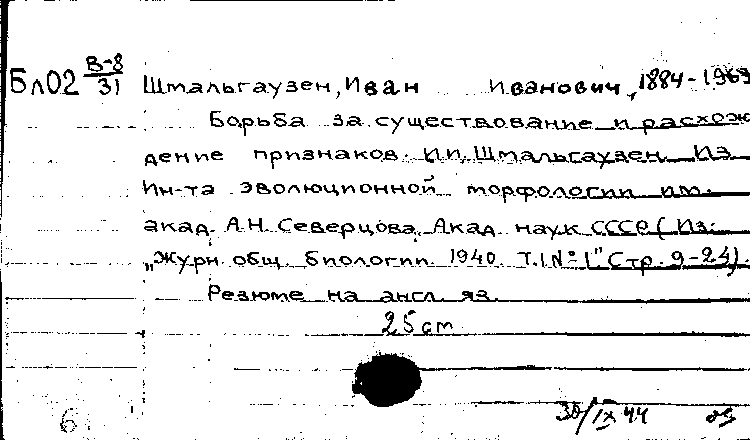 Бл02 В-8/31 Шмальгаузен, Иван Иванович, 1884-1963
Борьба за существование и расхож
дение признаков. И.И. Шмальгаузен. Из
Ин-та эволюционной морфологии им.
акад. А.Н. Северцова, Акад. наук СССР (Из:
„Журн. общ. биологии. 1940. Т.I №1." Стр. 9-24).
Резюме на англ. яз.
25 cm
30/IX 44
6